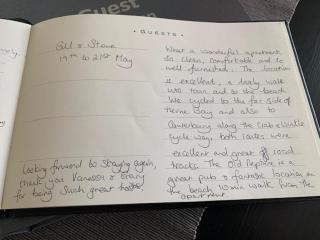 Guest
GUESTS
Gill & Steve
19th to 21st May
Looking forward to staying again,
thank you Vanessa &
for being such great hosts.
What a wonderful apartment,
so clean, comfortable and so
well furnished. The location
is excellent, a lovely walk
into town and to the beach.
We cycled to the far side of
Herne Bay and also to
Canterbury along the Crab & Winkle
cycle way, both routes were
excellent and great road
track. The Old Neptune is a
great pub & fantastic location on
the beach 10 min walk from the
apartment.